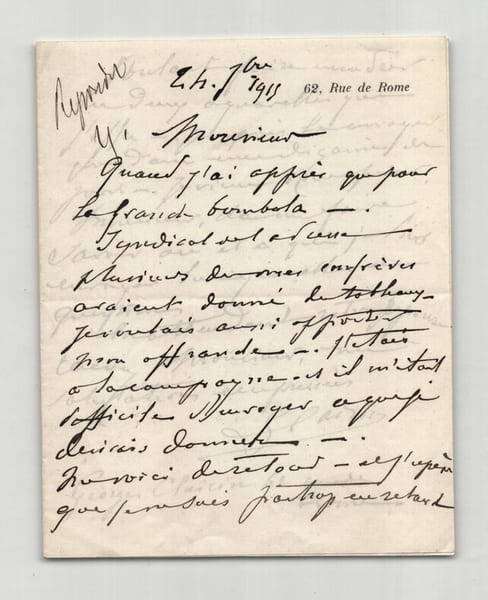 Répondu
24. 7bre 1915
62, Rue de Rome
Monsieur
Quand j'ai appris que pour
la grande tombola —.
Syndicat de la
plusieurs de mes confrères
avaient donné des tableaux
je voulais aussi apporter
mon offrande —. j'étais
à la campagne et il m'était
difficile d'envoyer ce que je
désirais donner —.
me voici de retour — et j'espère
que je ne suis pas trop en retard